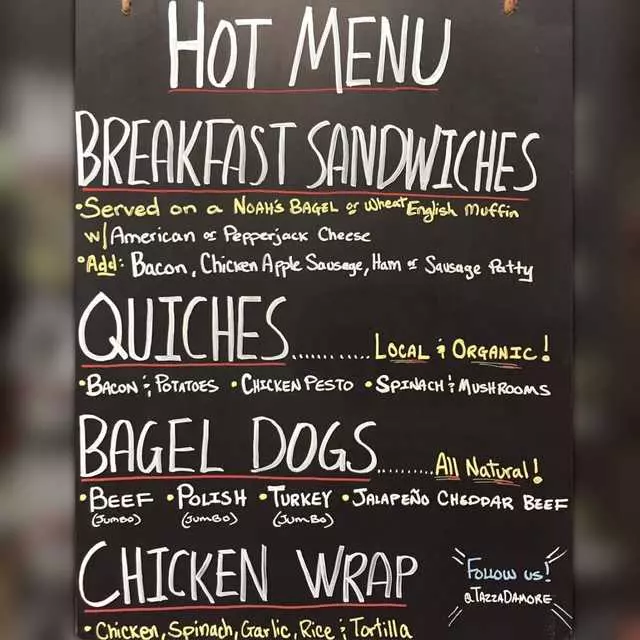 HOT MENU
BREAKFAST SANDWICHES
•Served on a NOAH'S BAGEL or Wheat English Muffin
w/ American or Pepperjack Cheese
•Add: Bacon, Chicken Apple Sausage, Ham or Sausage Patty
QUICHES............LOCAL & ORGANIC!
•BACON & POTATOES •CHICKEN PESTO •SPINACH & MUSHROOMS
BAGEL DOGS.........All Natural!
•BEEF •POLISH •TURKEY •JALAPEÑO CHEDDAR BEEF
(JUMBO) (JUMBO) (JUMBO)
CHICKEN WRAP
FOLLOW US!
@TAZZADAMORE
•Chicken, Spinach, Garlic, Rice & Tortilla